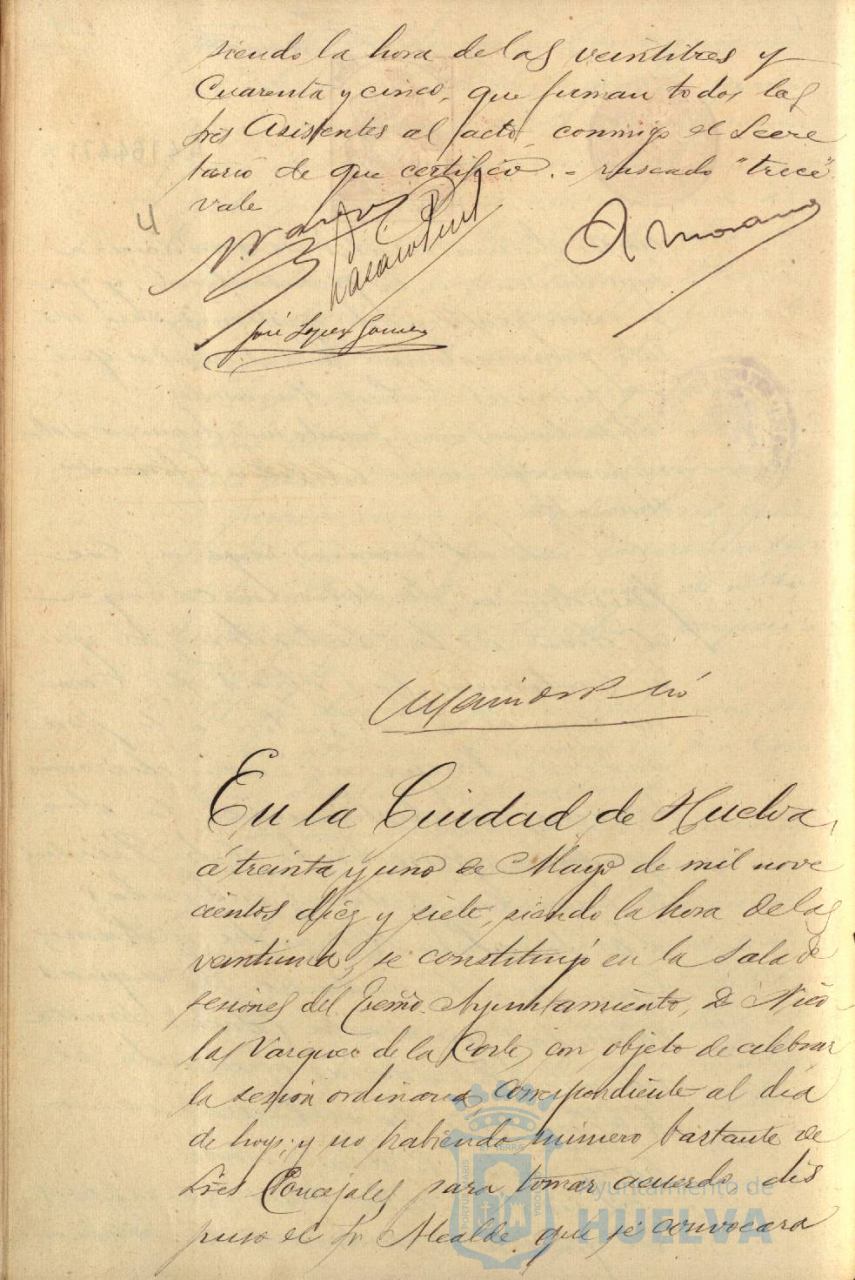 siendo la hora de las veintitres y
Cuarenta y cinco, que firman todos los
Sres Asistentes al acto, conmigo el Secre
tario de que certifico. = raseado "trece"
vale
4
A Morano
José Lopez Gomez
En la Ciudad de Huelva,
á treinta y uno de Mayo de mil nove
cientos diez y siete, siendo la hora de las
veintiuna, se constituyó en la Sala de
sesiones del Exemo. Ayuntamiento, D. Nico
las Vazquez de la Corte, con objeto de celebrar
la sesión ordinaria correspondiente al dia
de hoy; y no habiendo número bastante de
Sres Concejales para tomar acuerdo, dis
puso el Sr Alcalde que se convocara
Ayuntamiento de
HUELVA